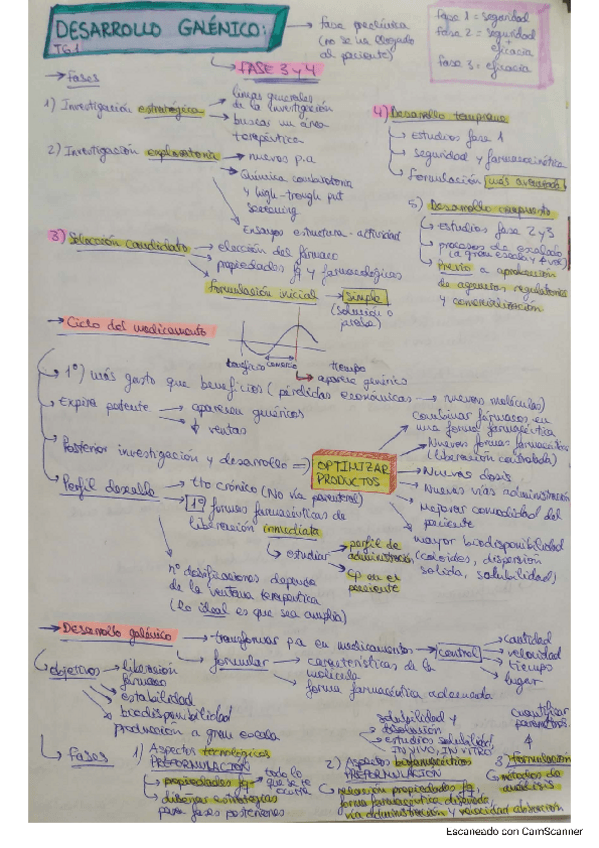 DESARROLLO GALÉNICO:
TG1
fase preclínica
(no se ha llegado
al paciente)
Fase 1 = seguridad
Fase 2 = seguridad
+
eficacia
Fase 3 = eficacia
FASE 3 y 4
→ Fases
1) Investigación estratégica
líneas generales
de la investigación
buscas un área
terapéutica
2) Investigación exploratoria
nuevos p.a
Química combinatoria
y high-trough put
screening
Ensayos estructura-actividad
3) Selección candidato
elección del fármaco
propiedades fq y farmacológicas
formulación inicial → simple
(solución o
prueba)
4) Desarrollo temprano
estudios fase 1
seguridad y farmacocinética
formulación más avanzada
5) Desarrollo compuesto
estudios fase 2 y 3
procesos de escalado
Previo a aprobación
de agencias regulatorias
y comercialización
→ Ciclo del medicamento
beneficio
comercio
tiempo
aparece genérico
1º) más gasto que beneficios (pérdidas económicas → nuevas moléculas)
Expira patente → aparecen genéricos
↓ ventas
Posterior investigación y desarrollo ⇒
OPTIMIZAR
PRODUCTOS
combinar fármacos en
una forma farmacéutica
Nuevas formas farmacéuticas
(liberación controlada)
Nuevas dosis
Nuevas vías administración
Mejorar comodidad del
paciente
mayor biodisponibilidad
(coloides, dispersión
solida, solubilidad)
Perfil deseable → tto crónico (No vía parenteral)
1º formas farmacéuticas de
liberación inmediata
estudiar
perfil de
administración
Cp en el
paciente
nº dosificaciones depende
de la ventana terapéutica
(lo ideal es que sea amplia)
→ Desarrollo galénico → transformar p.a en medicamentos → control
cantidad
velocidad
tiempo
lugar
formular → características de la
molécula
forma farmacéutica adecuada
objetivos → liberación
fármaco
estabilidad
biodisponibilidad
producción a gran escala
→ Fases
1) Aspectos tecnológicos
PREFORMULACIÓN
propiedades fq
todo lo
que se te
ocurra
diseñar estrategias
para fases posteriores
solubilidad y
disolución
estudios solubilidad
IN VIVO, IN VITRO
2) Aspectos biofarmacéuticos
PREFORMULACIÓN
relación propiedades fq,
forma farmacéutica diseñada,
vía administración y velocidad absorción
cuantificar
parámetros
3) formulación
métodos de
análisis
Escaneado con CamScanner